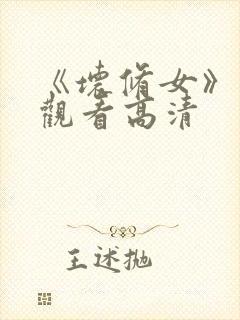 《壞脩女》
觀看高清
王述抛